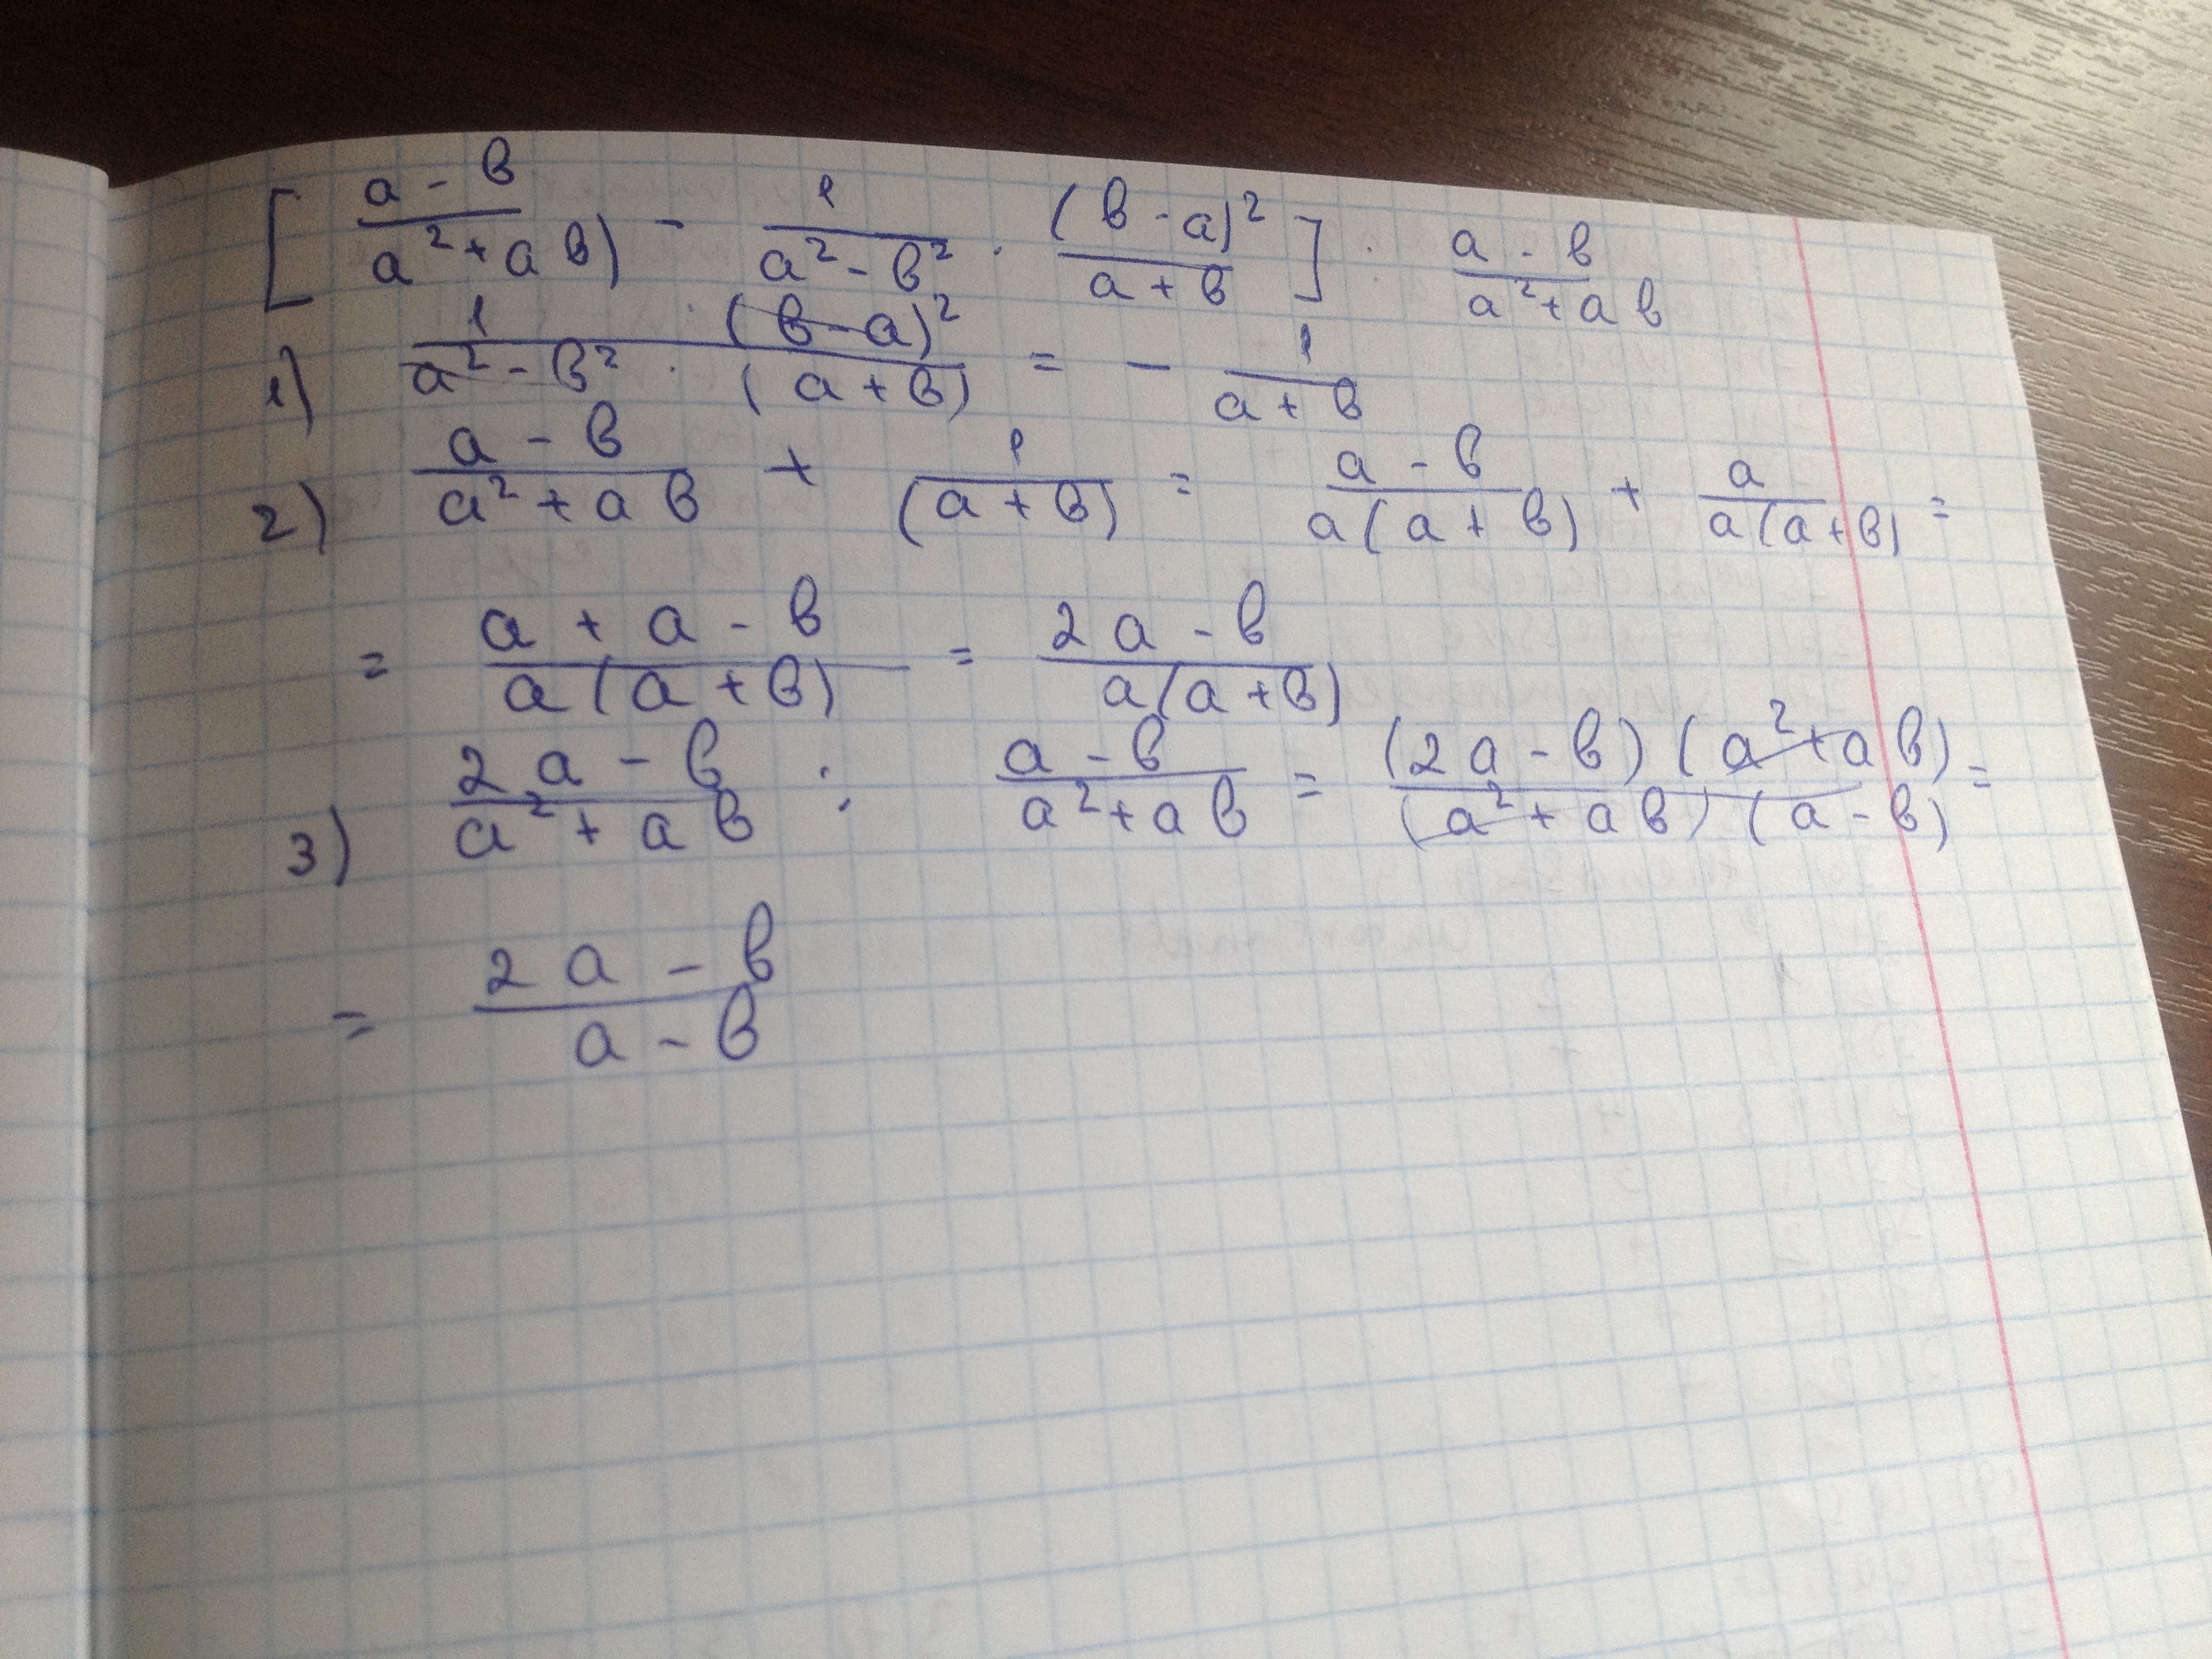 [ (a - b)/(a² + ab) - 1/(a² - b²) · (b - a)²/(a + b) ] : (a - b)/(a² + ab)
1) 1 · (b - a)²/(a² - b² · (a + b)) = - 1/(a + b)
2) (a - b)/(a² + ab) + 1/(a + b) = (a - b)/(a(a + b)) + a/(a(a + b)) =
= (a + a - b)/(a(a + b)) = (2a - b)/(a(a + b))
3) (2a - b)/(a² + ab) : (a - b)/(a² + ab) = (2a - b)(a² + ab)/((a² + ab)(a - b)) =
= (2a - b)/(a - b)